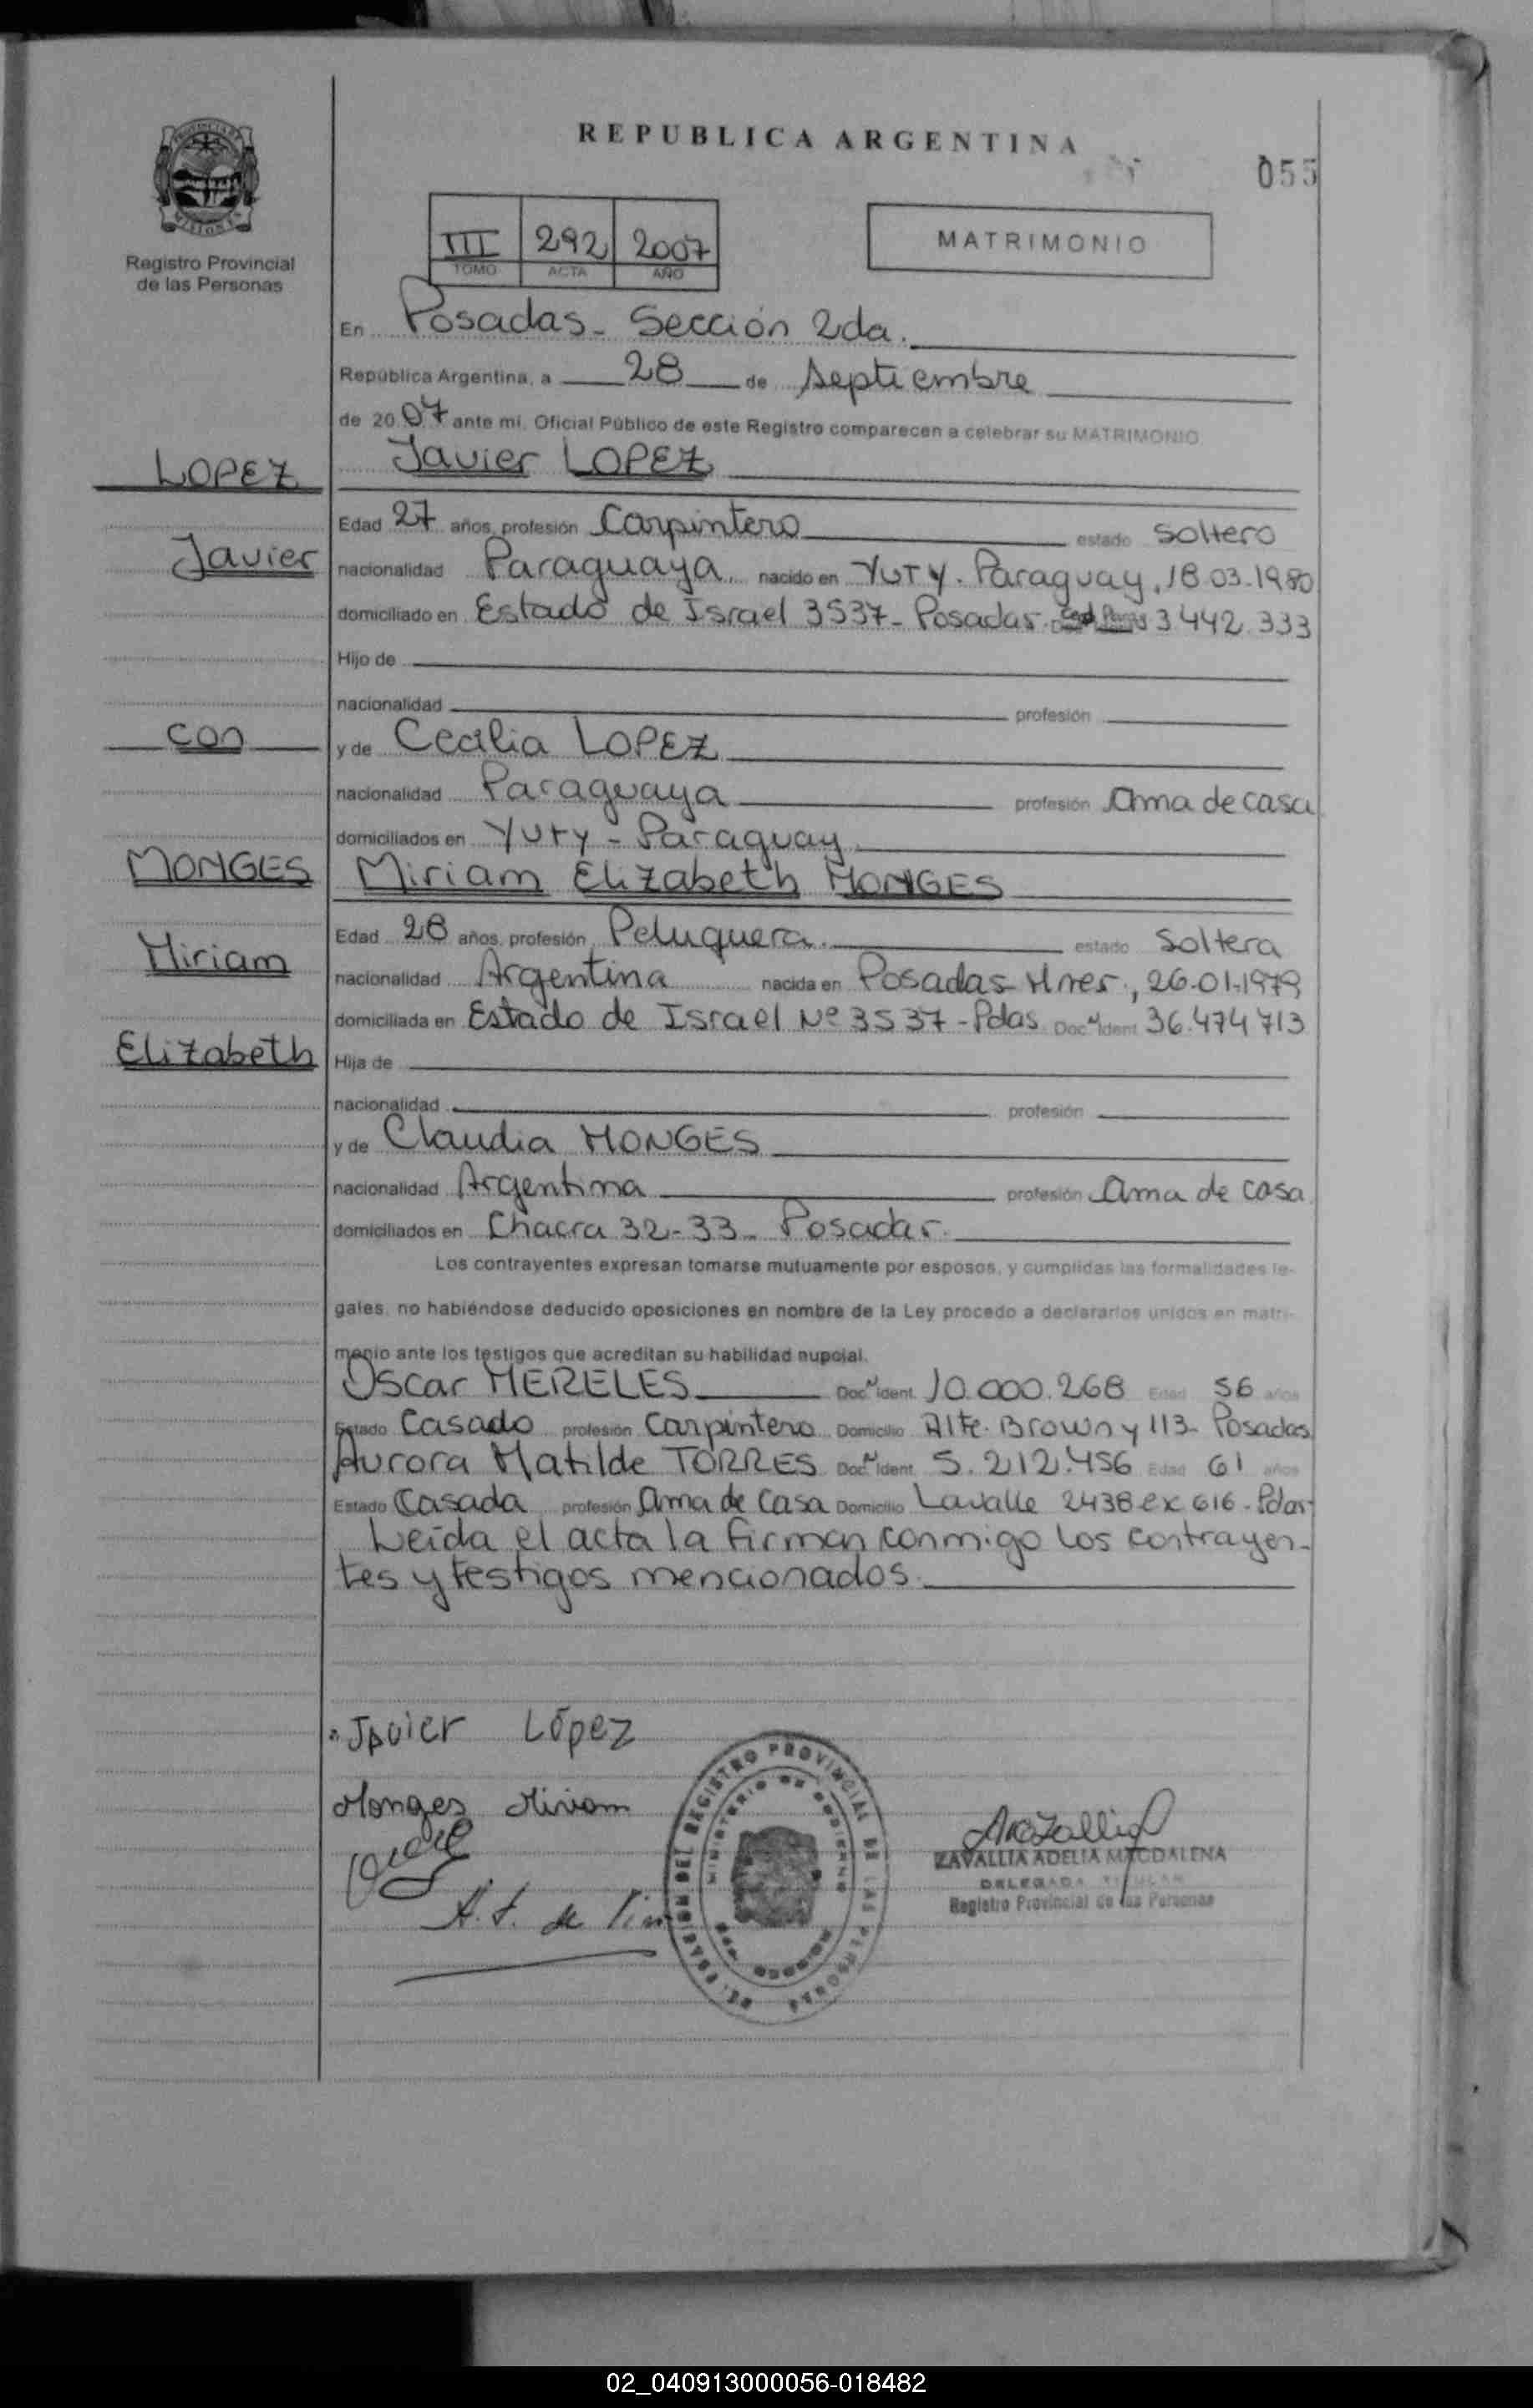 REPUBLICA ARGENTINA
055
Registro Provincial
de las Personas
III 292 2007
TOMO ACTA AÑO
MATRIMONIO
En Posadas - Sección 2da.
República Argentina, a 28 de Septiembre
de 2007 ante mi, Oficial Público de este Registro comparecen a celebrar su MATRIMONIO
LOPEZ
Javier LOPEZ
Edad 27 años, profesión Carpintero estado Soltero
Javier
nacionalidad Paraguaya, nacido en YUTY. Paraguay, 18.03.1980
domiciliado en Estado de Israel 3537 - Posadas. 3442.333
Hijo de
nacionalidad profesión
con
y de Cecilia LOPEZ
nacionalidad Paraguaya profesión Ama de casa
domiciliados en Yuty - Paraguay
MONGES
Miriam Elizabeth MONGES
Edad 28 años, profesión Peluquera. estado Soltera
Miriam
nacionalidad Argentina nacida en Posadas Mnes., 26.01.1979
domiciliada en Estado de Israel Nº 3537 - Pdas Doc. Ident. 36.474713
Elizabeth
Hija de
nacionalidad profesión
y de Claudia MONGES
nacionalidad Argentina profesión Ama de casa
domiciliados en Chacra 32-33 - Posadas.
Los contrayentes expresan tomarse mutuamente por esposos, y cumplidas las formalidades le-
gales, no habiéndose deducido oposiciones en nombre de la Ley procedo a declararlos unidos en matri-
monio ante los testigos que acreditan su habilidad nupcial.
Oscar MERELES Doc. Ident. 10.000.268 Edad 56 años
Estado Casado profesión Carpintero Domicilio Alte. Brown y 113 - Posadas
Aurora Matilde TORRES Doc. Ident. 5.212.456 Edad 61 años
Estado Casada profesión Ama de Casa Domicilio Lavalle 2438 ex 616 - Pdas
Leída el acta la firman conmigo los contrayen-
tes y testigos mencionados.
Javier López
Monges Miriam
A. T. de
DEL REGISTRO PROVINCIAL DE LAS PERSONAS
MINISTERIO DE GOBIERNO
ZAVALLIA ADELIA MAGDALENA
DELEGADA TITULAR
Registro Provincial de las Personas
02_040913000056-018482